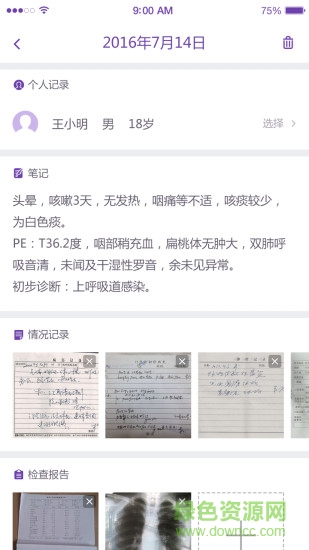 9:00 AM
75%
2016年7月14日
个人记录
王小明 男 18岁
选择
笔记
头晕，咳嗽3天，无发热，咽痛等不适，咳痰较少，
为白色痰。
PE：T36.2度，咽部稍充血，扁桃体无肿大，双肺呼
吸音清，未闻及干湿性罗音，余未见异常。
初步诊断：上呼吸道感染。
情况记录
检查报告
绿色资源网
www.downcc.com